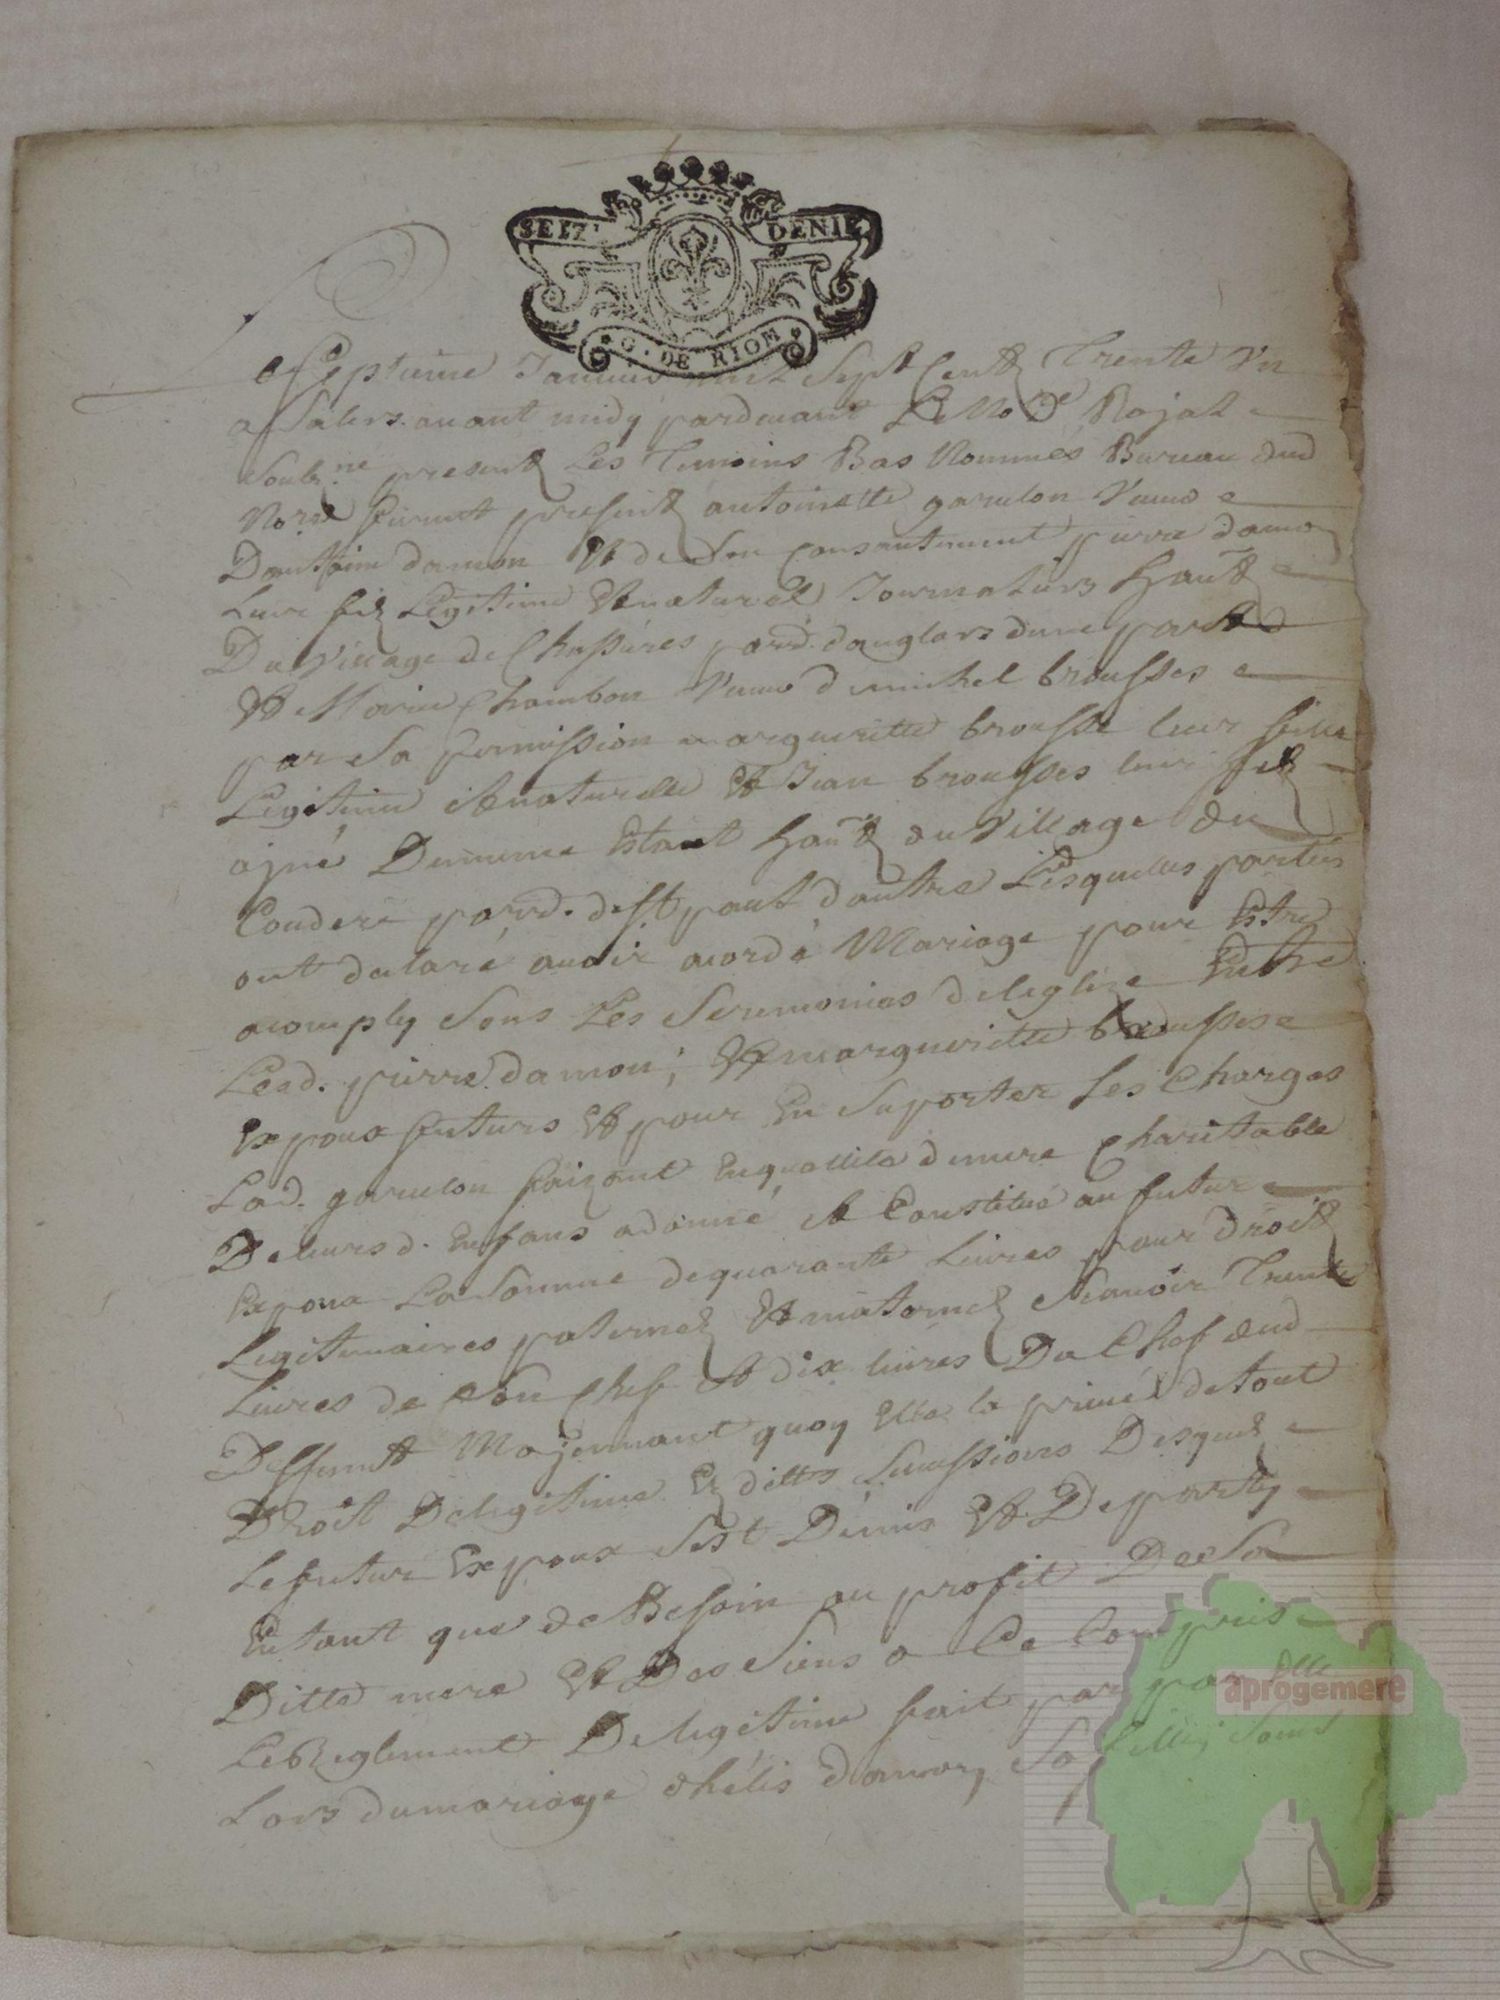 SEIZ DENIE
G. DE RIOM
Septieme Janvier mil Sept Centz Trente Un
a Salers avant midy pardevant Le No.re Royal
Soubz.ne presentz Les Temoins Bas Nommés Bureau dud
No.re furent presentz antoinette garulon Veuve
Dantoine damon Et de Son Consentement pierre damon
Leur filz Legitime Et naturel Journaliers hantz
Du Village de Chapsieres parr. danglars dune part
Et Marie Chambon Veuve de michel brousses
par Sa permission margueritte brousse leur fille
Legitime Et naturelle Et Jean brousses leur filz
ayné Dememe Estant hantz du Village du
Couderc parr. de St paul dautre Lesquelles parties
ont declaré avoir acordé Mariage pour Estre
acomply Sous Les Seremonies de leglize Entre
Lesd. pierre damon, Et margueritte brousses
Expoux futurs Et pour En Suporter Les Charges
Lad. garulon faizant En quallité de mere Charitable
De leurs d. Enfans a donné Et Constitué au futur
Expoux La Somme de quarante Livres pour droitz
Legitimaires paternelz Et maternelz Scavoir Trente
Livres de Son Chef Et dix livres Du Chef dud
Deffunt Moyennant quoy Elle la privé de tout
Droit De legitime Es dittes Sucessions Desquelz
Le futur Expoux Sest Démis Et Departy
En tant que de Besoin au profit De Sa
Ditte mere Et Des Siens a Ce Compris
Le Reglement De legitime fait par Elle
Lors du mariage dhélis damon Sa fille Sans
aprogemere